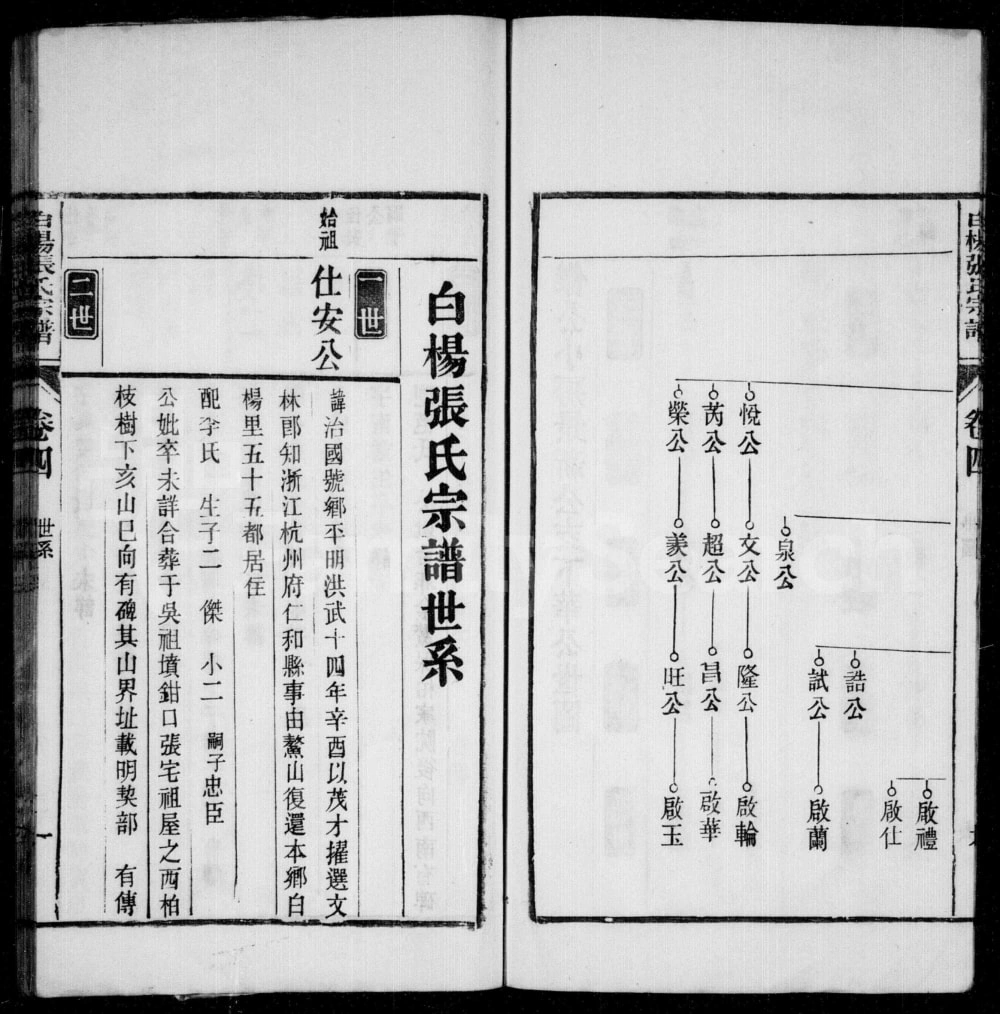 白楊張氏宗譜
卷四
啟禮
啟仕
誥公
試公
啟蘭
泉公
悅公
文公
隆公
啟輪
芮公
超公
昌公
啟華
榮公
羙公
旺公
啟玉
白楊張氏宗譜世系
一世
始祖
仕安公
諱治國號鄉平明洪武十四年辛酉以茂才擢選文
林郎知浙江杭州府仁和縣事由鰲山復還本鄉白
楊里五十五都居住
配李氏 生子二 傑 小二 嗣子忠臣
公妣卒未詳合葬于吳祖墳鉗口張宅祖屋之西柏
枝樹下亥山巳向有碑其山界址載明契部 有傳
二世
白楊張氏宗譜
卷四
世系
一